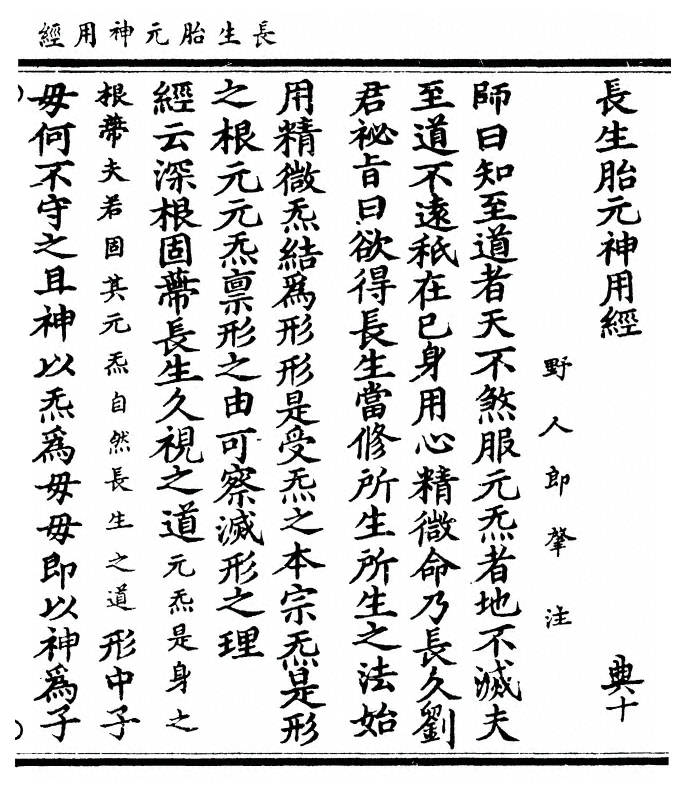 經用神元胎生長
長生胎元神用經
野人郎肇注
典十
師曰知至道者天不煞服元炁者地不滅夫
至道不遠秖在已身用心精微命乃長久劉
君祕旨曰欲得長生當修所生所生之法始
用精微炁結爲形形是受炁之本宗炁是形
之根元元炁禀形之由可察滅形之理
經云深根固蔕長生久視之道元炁是身之
根蔕夫若固其元炁自然長生之道形中子
毋何不守之且神以炁爲毋毋即以神爲子